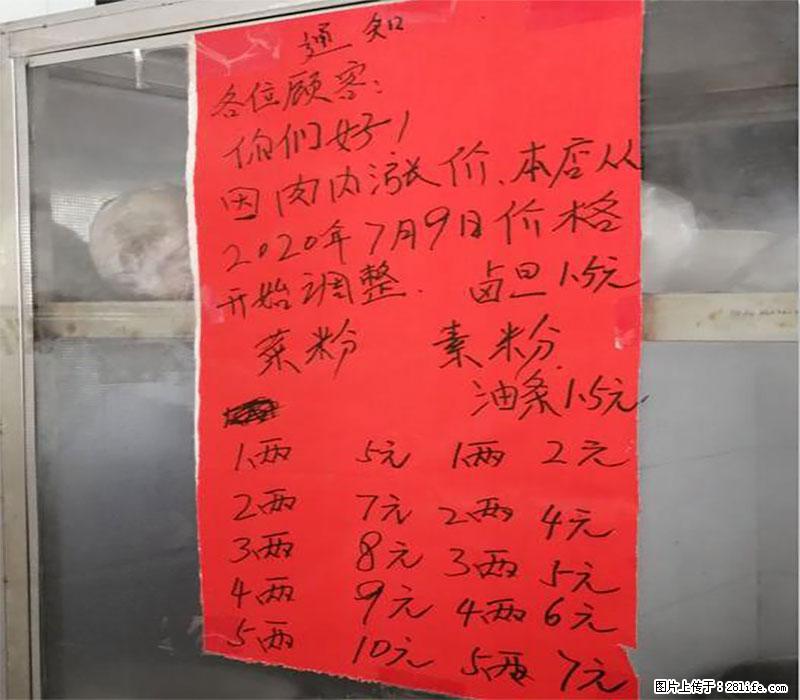 通知
各位顾客:
你们好!
因肉内涨价、本店从
2020年7月9日价格
开始调整. 卤旦1.5元
菜粉 素粉
油条1.5元
1两 5元 1两 2元
2两 7元 2两 4元
3两 8元 3两 5元
4两 9元 4两 6元
5两 10元 5两 7元
图片上传于:28life.com